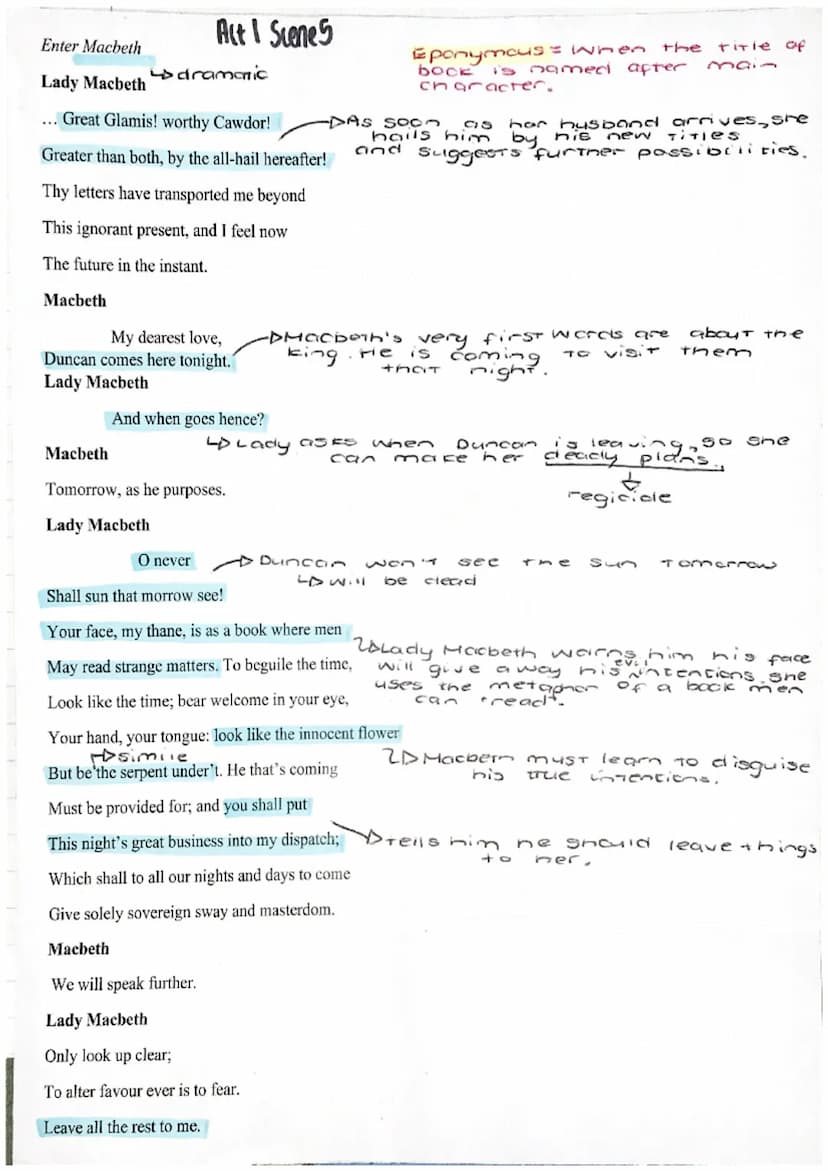 Act 1 Scene 5
Enter Macbeth
Eponymous = when the title of
book is named after main
character.
Lady Macbeth
↳ dramatic
... Great Glamis! worthy Cawdor!
As soon as her husband arrives, she
hails him by his new titles
and suggests further possibilities.
Greater than both, by the all-hail hereafter!
Thy letters have transported me beyond
This ignorant present, and I feel now
The future in the instant.
Macbeth
My dearest love,
Duncan comes here tonight.
Macbeth's very first words are about the
king. He is coming to visit them
that night.
Lady Macbeth
And when goes hence?
Lady asks when Duncan is leaving, so she
can make her deadly plans.
regicide
Macbeth
Tomorrow, as he purposes.
Lady Macbeth
O never
Duncan won't see the sun tomorrow
↳ will be dead
Shall sun that morrow see!
Your face, my thane, is as a book where men
Lady Macbeth warns him his face
will give away his evil intentions. she
uses the metaphor of a book men
can "read".
May read strange matters. To beguile the time,
Look like the time; bear welcome in your eye,
Your hand, your tongue: look like the innocent flower
simile
Macbeth must learn to disguise
his true intentions.
But be the serpent under't. He that's coming
Must be provided for; and you shall put
This night's great business into my dispatch;
tells him he should leave things
to her.
Which shall to all our nights and days to come
Give solely sovereign sway and masterdom.
Macbeth
We will speak further.
Lady Macbeth
Only look up clear;
To alter favour ever is to fear.
Leave all the rest to me.